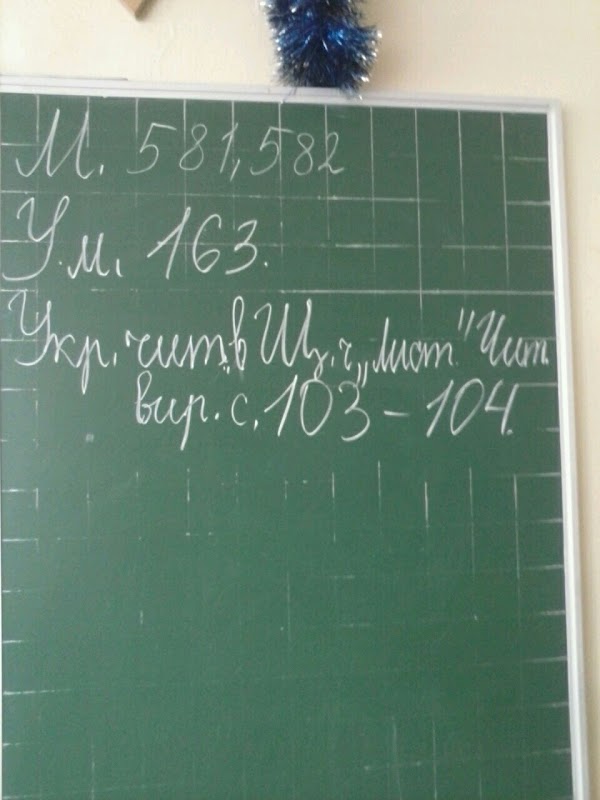 М. 581,582
У.м. 163.
Укр. чит. в Щ. ч. „лист" Чит
вир. с. 103 – 104.